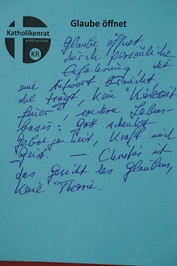 Katholikenrat
KR
Glaube öffnet
Glaube öffnet
durch persönliche
Erfahrung die
eine Antwort
die trägt, kein
sondern Lebens-
basis: Gott schenkt
Kraft und
— Christus ist
das Gesicht des Glaubens,
keine Theorie.